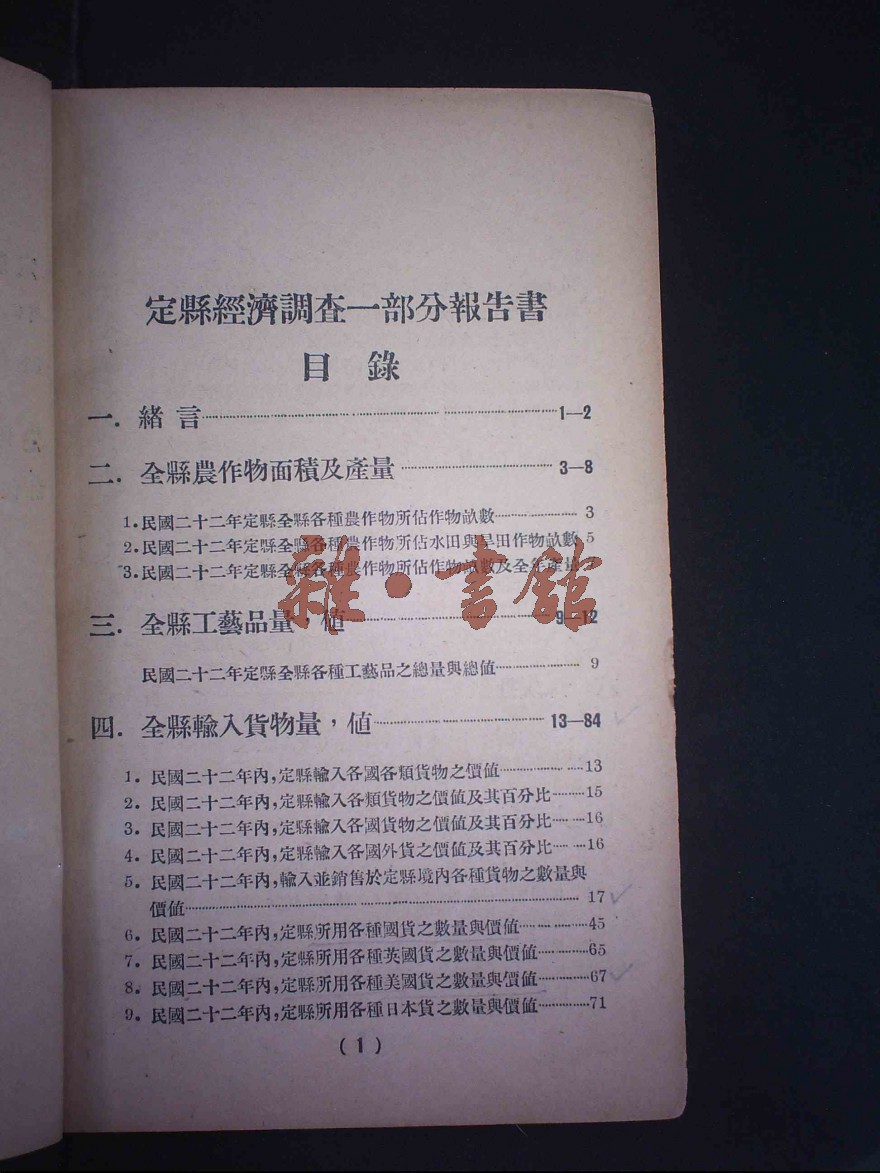 定縣經濟調查一部分報告書
目 錄
一. 緒 言 1—2
二. 全縣農作物面積及產量 3—8
1. 民國二十二年定縣全縣各種農作物所佔作物畝數 3
2. 民國二十二年定縣全縣各種農作物所佔水田與旱田作物畝數 5
3. 民國二十二年定縣全縣各種農作物所佔作物畝數及全年產量
雜·書館
三. 全縣工藝品量，值 9—12
民國二十二年定縣全縣各種工藝品之總量與總值 9
四. 全縣輸入貨物量，值 13—84
1. 民國二十二年內,定縣輸入各國各類貨物之價值 13
2. 民國二十二年內,定縣輸入各類貨物之價值及其百分比 15
3. 民國二十二年內,定縣輸入各國貨物之價值及其百分比 16
4. 民國二十二年內,定縣輸入各國外貨之價值及其百分比 16
5. 民國二十二年內,輸入並銷售於定縣境內各種貨物之數量與
價值 17
6. 民國二十二年內,定縣所用各種國貨之數量與價值 45
7. 民國二十二年內,定縣所用各種英國貨之數量與價值 65
8. 民國二十二年內,定縣所用各種美國貨之數量與價值 67
9. 民國二十二年內,定縣所用各種日本貨之數量與價值 71
( 1 )